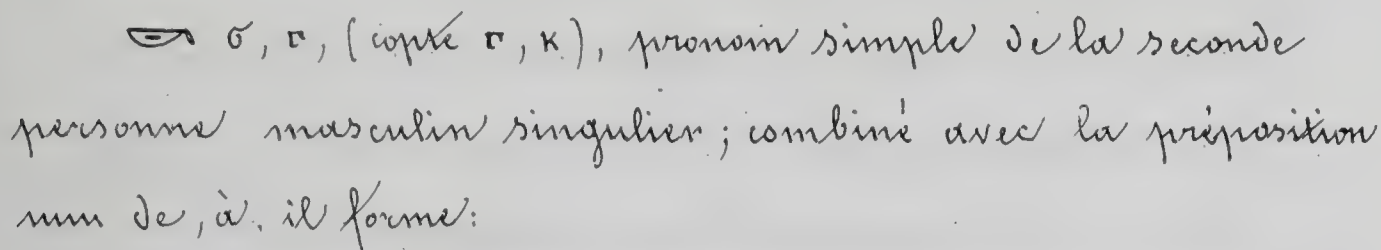 𓎡 ϭ, ⲅ, (copte ⲅ, ⲕ), pronom simple de la seconde
personne masculin singulier; combiné avec la préposition
𓈖 de, à. il forme: